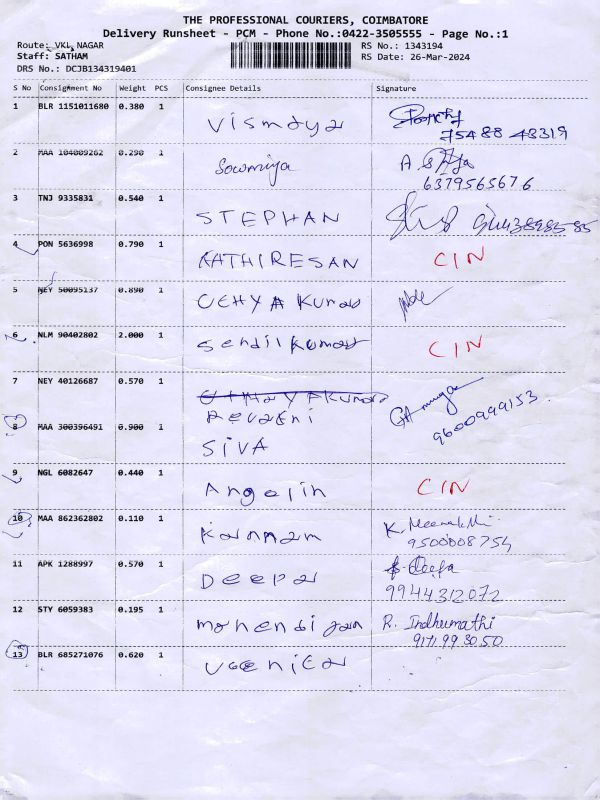 THE PROFESSIONAL COURIERS, COIMBATORE
Delivery Runsheet - PCM - Phone No.:0422-3505555 - Page No.:1
Route: VKL NAGAR
RS No.: 1343194
Staff: SATHAM
RS Date: 26-Mar-2024
DRS No.: DCJB134319401
S No Consignment No Weight PCS Consignee Details Signature
1 BLR 1151011680 0.380 1 Vismaya
75488 48319
2 MAA 104009262 0.290 1 Sowmiya
6379565676
3 TNJ 9335831 0.540 1 STEPHAN
4 PON 5636998 0.790 1 KATHIRESAN CIN
5 NEY 50095137 0.890 1 Kumar
6 NLM 90402802 2.000 1 Sendilkumar CIN
7 NEY 40126687 0.570 1
Revathi
9600999153.
8 MAA 300396491 0.900 1 SIVA
9 NGL 6082647 0.440 1 Angelin CIN
10 MAA 862362802 0.110 1 Kannam K. Meenakshi
9500008754
11 APK 1288997 0.570 1 Deepa Deepa
9944312072
12 STY 6059383 0.195 1 R. Indhumathi
9171993050
13 BLR 685271076 0.620 1